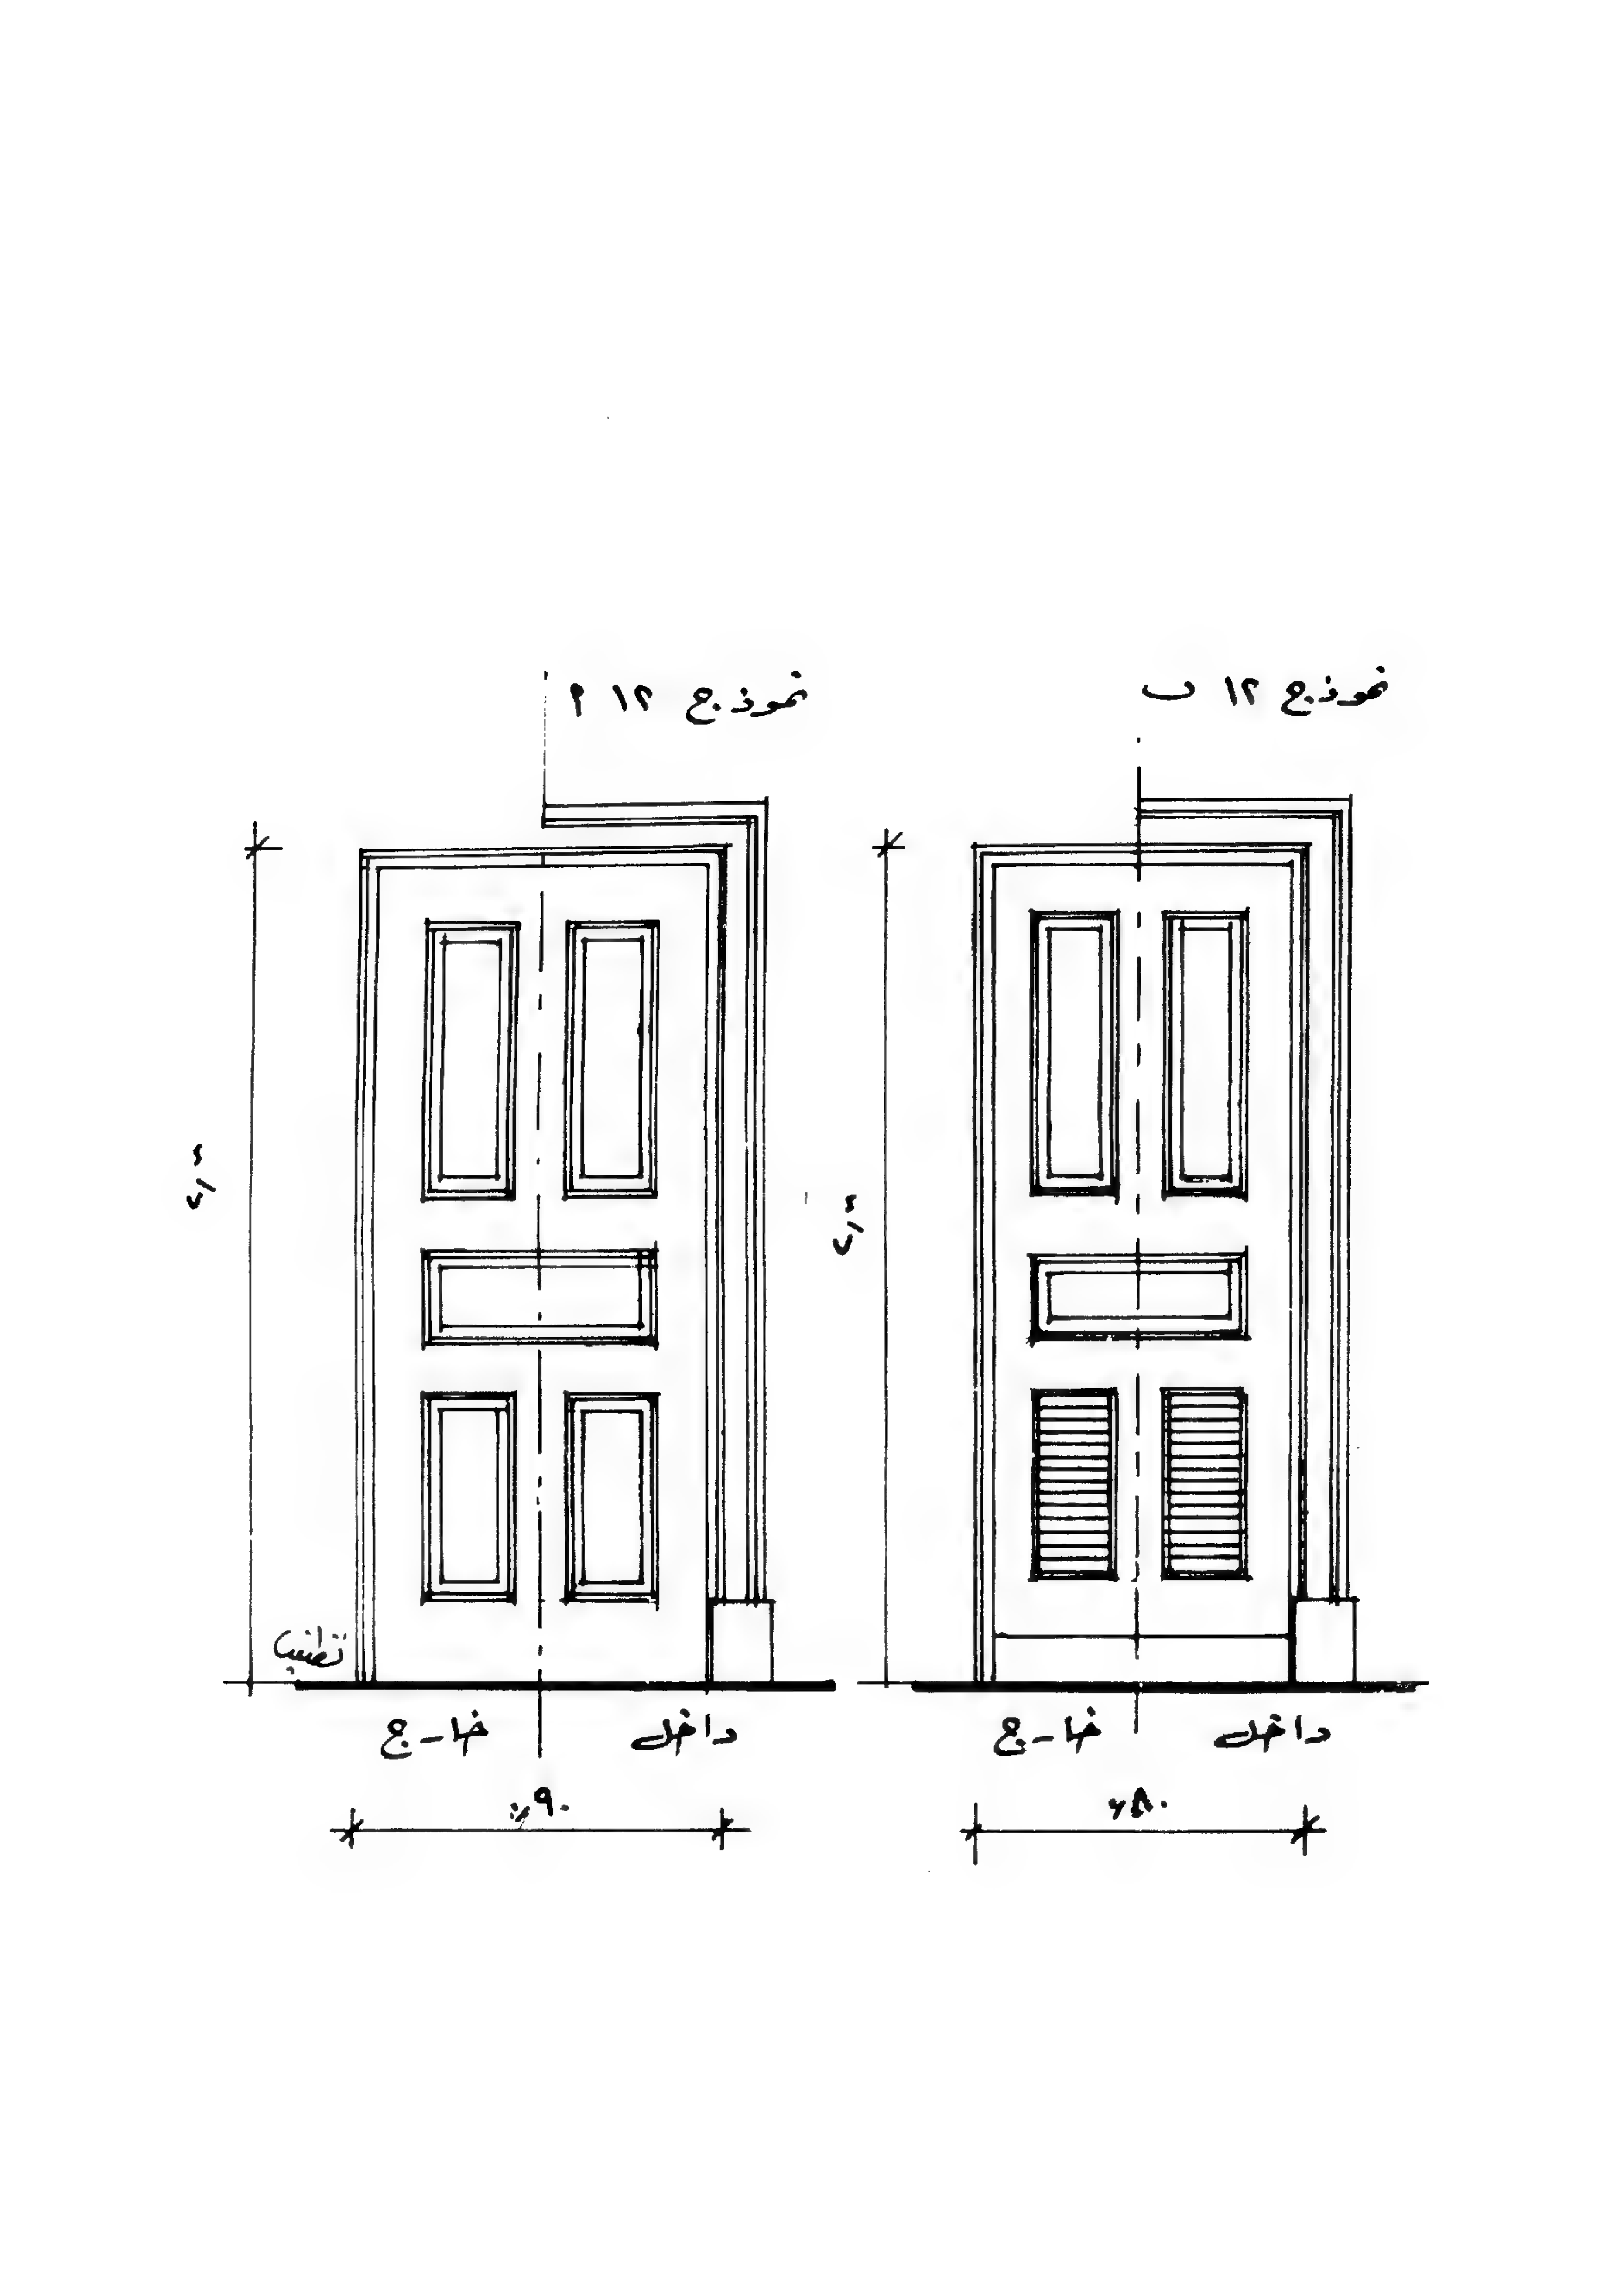 نموذج ١٢ أ
نموذج ١٢ ب
٢,٠٠
٢,٠٠
خارج
داخل
خارج
داخل
٩٠,
٨٠,